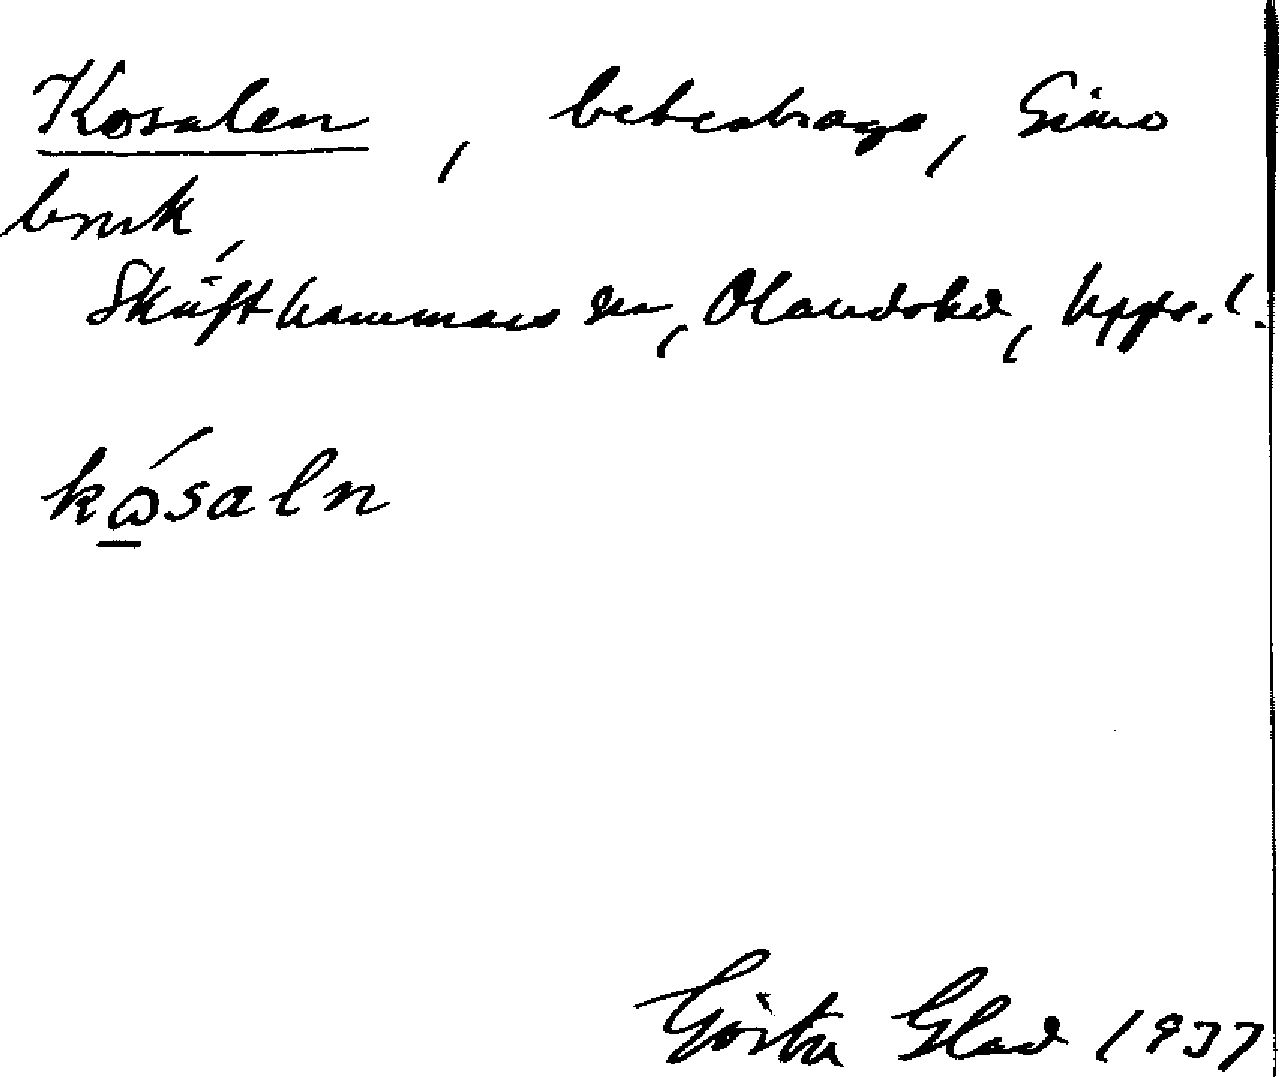 Kosalen, beteshage, Gimo
bruk,
Skäfthammars sn, Olands hd, Upps. l.
kώsaln
Gösta Glad 1937